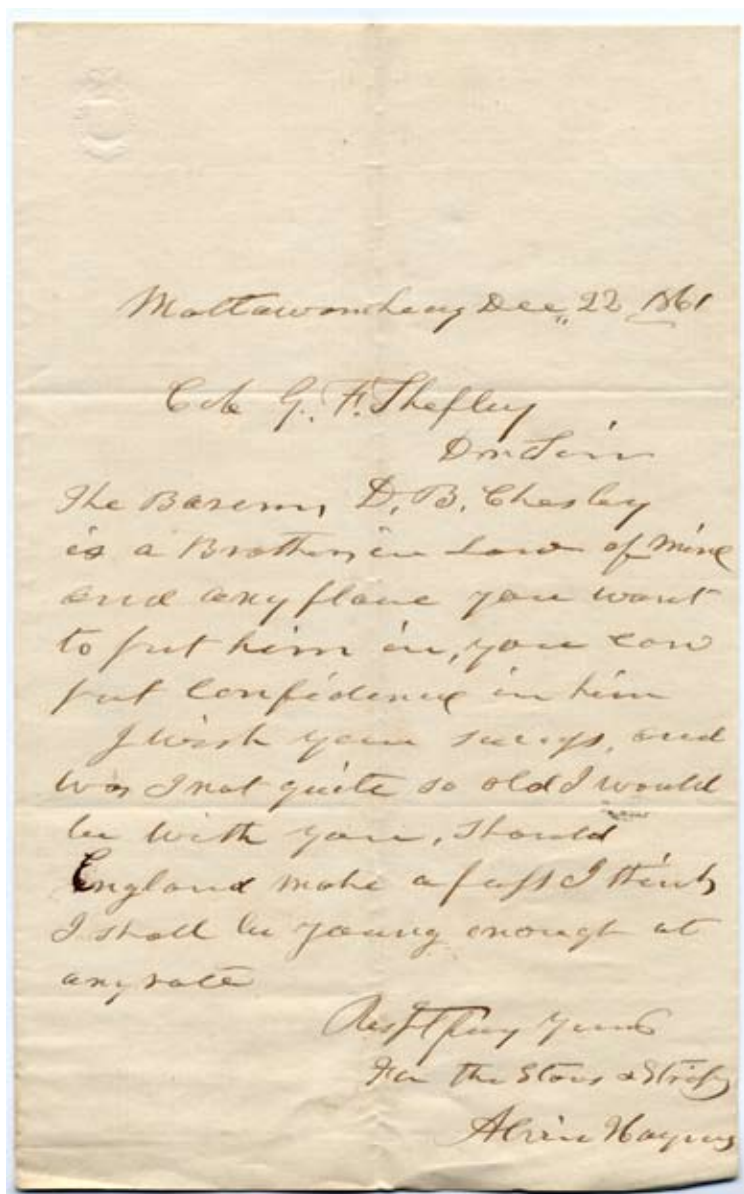 Mattawamkeag Dec,, 22 1861
Col G. F. Shepley
Dr Sir
The Barer, D. B. Chesley
is a Brother in Law of Mine
and any place you want
to put him in, you can
put Confidence in him
I wish you sucsys, and
was I not quite so old I would
be with you, Should
England make a fuss I think
I shall be young enough at
any rate
Respectfuly Yours
For the Stars & Strips
Alvin Haynes